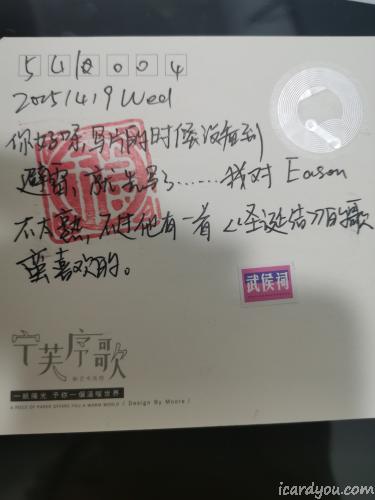 2025/4/9 Wed
你好呀,写片的时候没看到
避雷,就先写了……我对 Eason
不太熟,不过他有一首《圣诞结》的歌
蛮喜欢的。
武侯祠
芙序歌
一紙陽光 予你一個溫暖世界
A PIECE OF PAPER GIVING YOU A WARM WORLD / Design By Moore /
icardyou.com